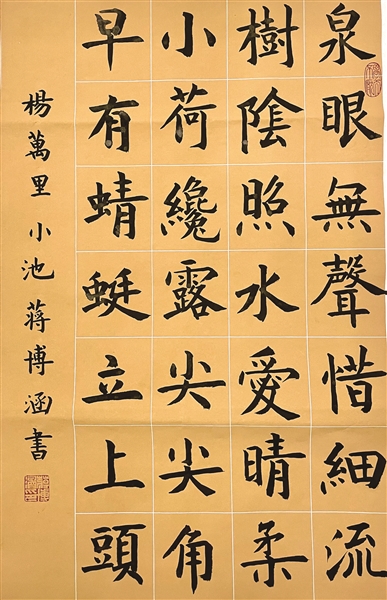 泉眼無聲惜細流
樹陰照水愛晴柔
小荷纔露尖尖角
早有蜻蜓立上頭
楊萬里小池蔣博涵書